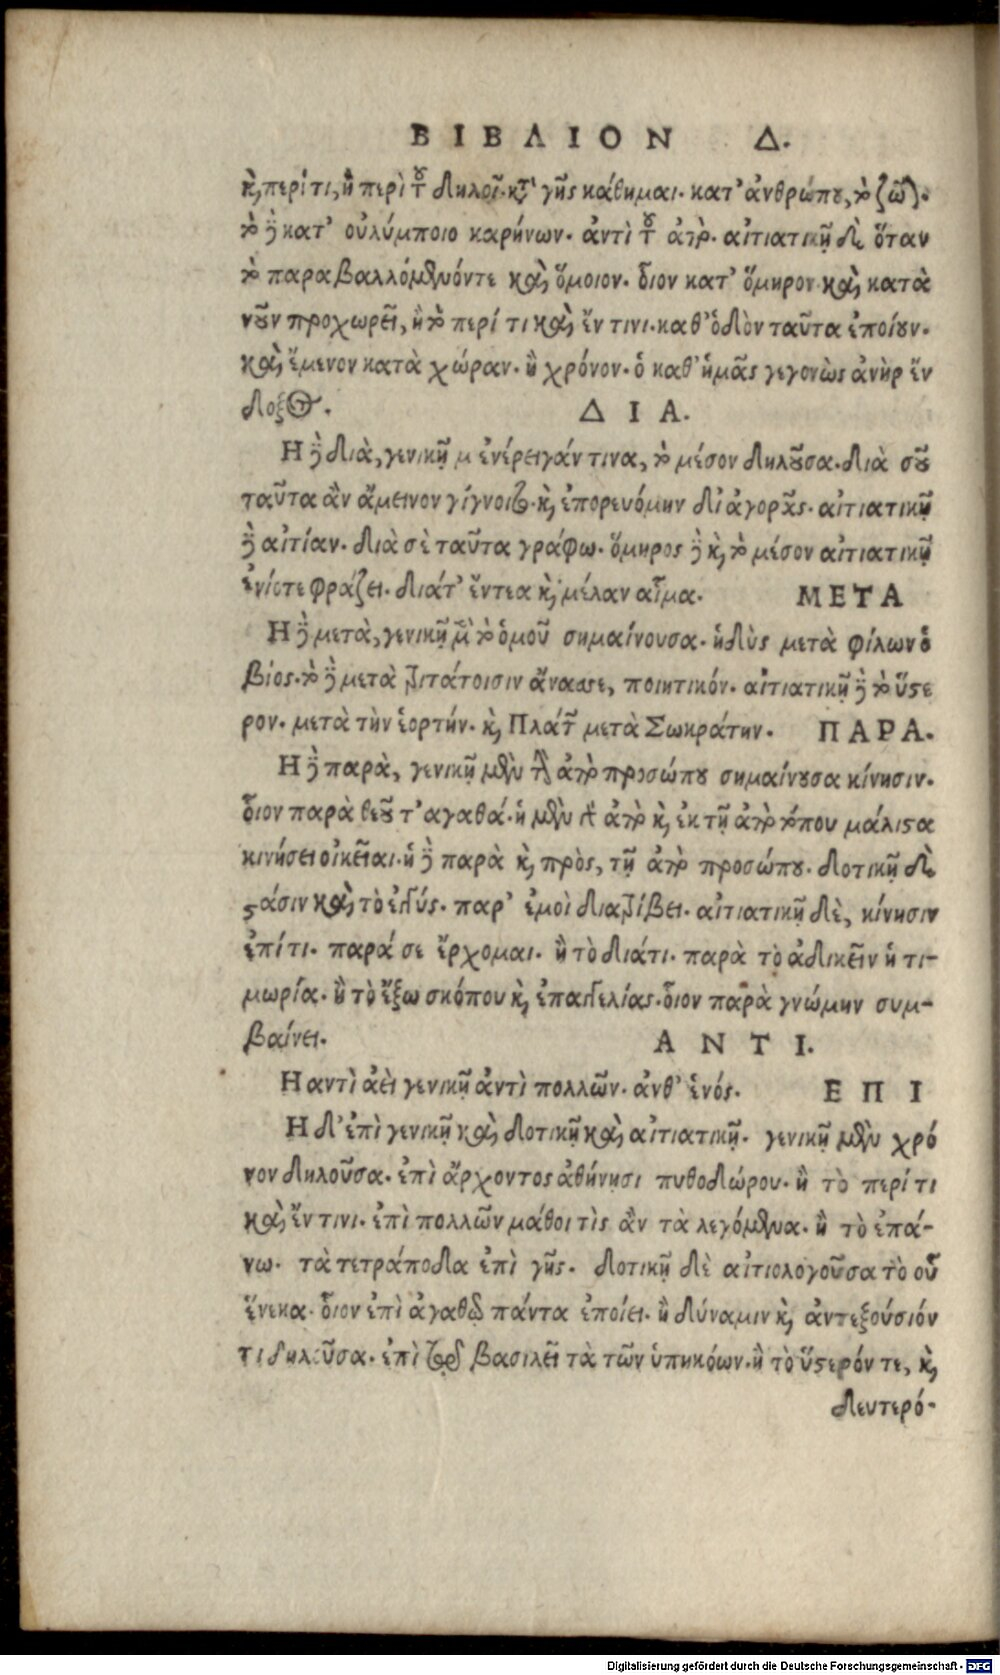 ΒΙΒΛΙΟΝ Δ.
καὶ περί τι, ἢ περὶ τοῦ δηλοῖ. κατὰ γῆς κάθημαι. κατ' ἀνθρώπου, τὸ
τὸ δὲ κατ' οὐλύμποιο καρήνων. ἀντὶ τοῦ ἀπὸ. αἰτιατικῇ δὲ ὅταν
τὸ παραβαλλόμενόν τε καὶ ὅμοιον. οἷον κατ' ὅμηρον καὶ κατὰ
νοῦν προχωρεῖ, ἢ τὸ περί τι καὶ ἔν τινι. καθ' ὁδὸν ταῦτα ἐποίουν.
καὶ ἔμενον κατὰ χώραν. ἢ χρόνον. ὁ καθ' ἡμᾶς γεγονὼς ἀνὴρ ἔν
δοξος. ΔΙΑ.
Η δὲ διὰ, γενικῇ μ ἐνέργειάν τινα, τὸ μέσον δηλοῦσα. διὰ σοῦ
ταῦτα ἂν ἄμεινον γίγνοιτο. καὶ ἐπορευόμην δι' ἀγορᾶς. αἰτιατικῇ
δὲ αἰτίαν. διὰ σὲ ταῦτα γράφω. ὅμηρος δὲ καὶ τὸ μέσον αἰτιατικῇ
ἐνίοτε φράζει. διά τ' ἔντεα καὶ μέλαν αἷμα. ΜΕΤΑ
Η δὲ μετὰ, γενικῇ μὲν τὸ ὁμοῦ σημαίνουσα. ἡδὺς μετὰ φίλων ὁ
βίος. τὸ δὲ μετὰ τριτάτοισιν ἄνασσε, ποιητικόν. αἰτιατικῇ δὲ τὸ ὕστε
ρον. μετὰ τὴν ἑορτήν. καὶ Πλάτων μετὰ Σωκράτην. ΠΑΡΑ.
Η δὲ παρὰ, γενικῇ μὲν τὴν ἀπὸ προσώπου σημαίνουσα κίνησιν.
οἷον παρὰ θεοῦ τ' αγαθά. ἡ μὲν ἀπὸ καὶ ἐκ τῇ ἀπὸ τόπου μάλιστα
κινήσει οἰκεῖαι. ἡ δὲ παρὰ καὶ πρὸς, τῇ ἀπὸ προσώπου. δοτικῇ δὲ
στάσιν καὶ τὸ ἐγγύς. παρ' ἐμοὶ διατρίβει. αἰτιατικῇ δὲ, κίνησιν
ἐπί τι. παρά σε ἔρχομαι. ἢ τὸ διάτι. παρὰ τὸ ἀδικεῖν ἡ τι-
μωρία. ἢ τὸ ἔξω σκόπου καὶ ἐπαγγελίας. οἷον παρὰ γνώμην συμ-
βαίνει. ΑΝΤΙ.
Η αντὶ ἀεὶ γενικῇ ἀντὶ πολλῶν. ἀνθ' ἑνός. ΕΠΙ
Η δ' ἐπὶ γενικῇ καὶ δοτικῇ καὶ αἰτιατικῇ. γενικῇ μὲν χρό
νον δηλοῦσα. ἐπὶ ἄρχοντος ἀθήνησι πυθοδώρου. ἢ τὸ περί τι
καὶ ἔν τινι. ἐπὶ πολλῶν μάθοι τὶς ἂν τὰ λεγόμενα. ἢ τὸ ἐπά-
νω. τὰ τετράποδα ἐπὶ γῆς. δοτικῇ δὲ αἰτιολογοῦσα τὸ οὗ
ἕνεκα. οἷον ἐπὶ ἀγαθῷ πάντα ἐποίει. ἢ δύναμιν καὶ ἀντεξούσιόν
τι δηλοῦσα. ἐπὶ τῷ βασιλεῖ τὰ τῶν ὑπηκόων. ἢ τὸ ὕστερόν τε, καὶ
δευτερό-
Digitalisierung gefördert durch die Deutsche Forschungsgemeinschaft - DFG